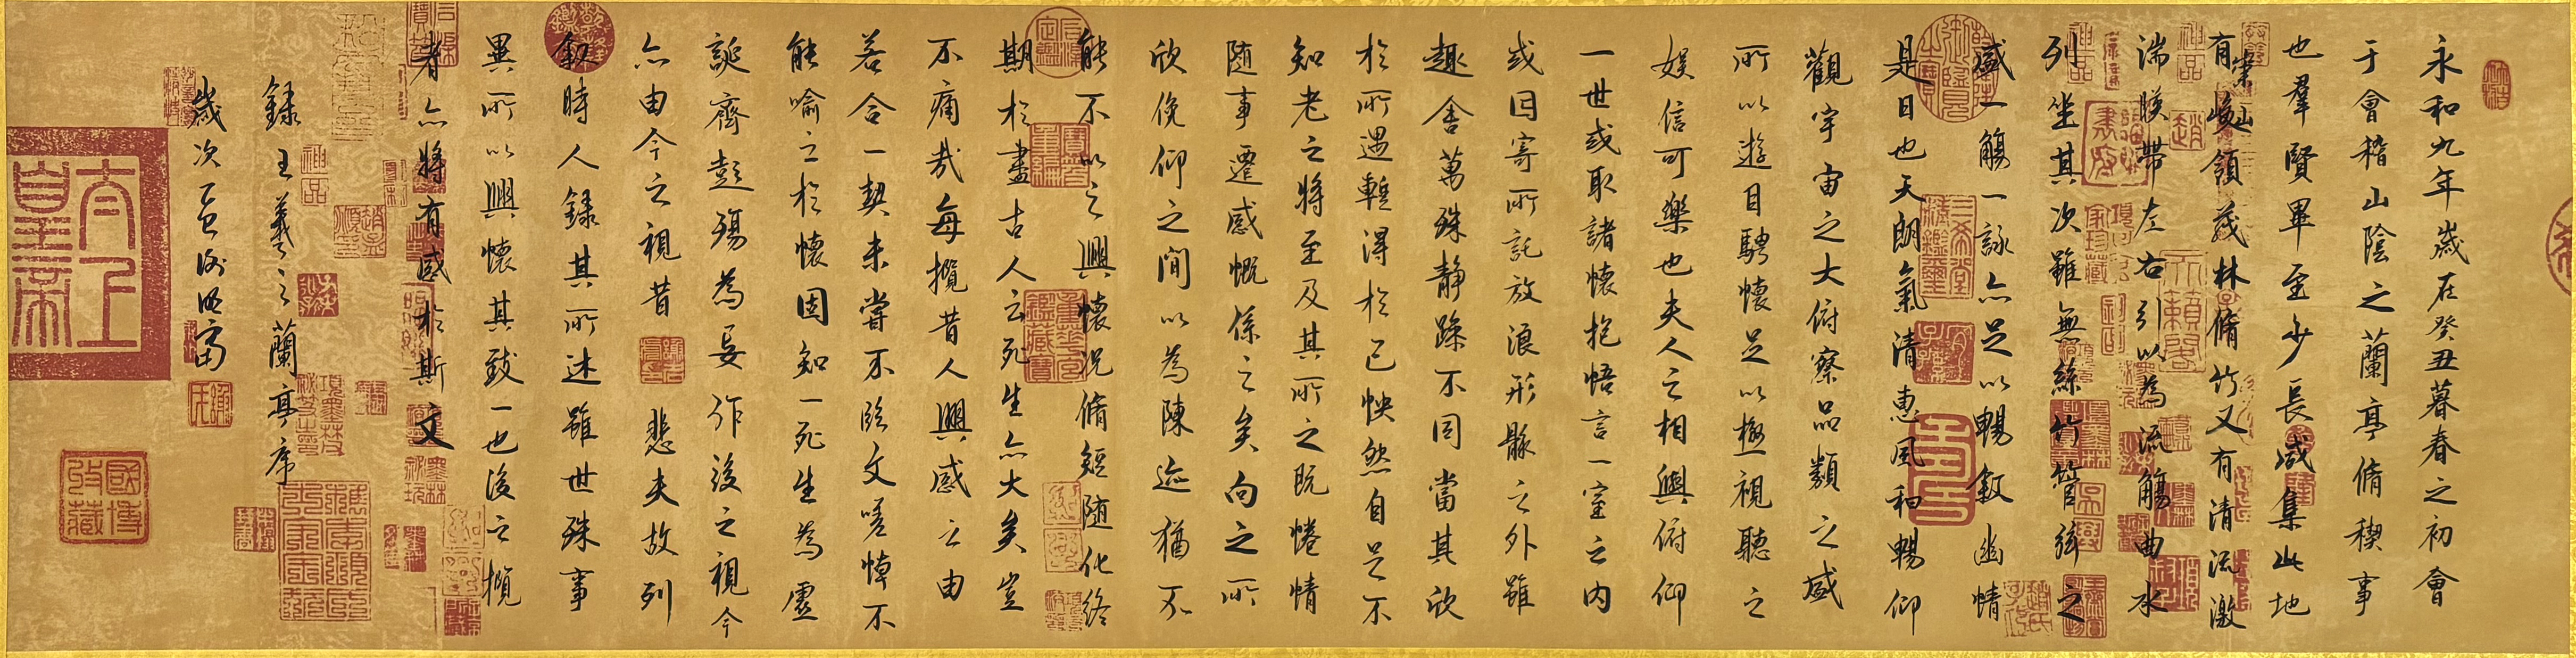 永和九年歲在癸丑暮春之初會
于會稽山陰之蘭亭脩稧事
也羣賢畢至少長咸集此地
有崇山峻領茂林脩竹又有清流激
湍暎帶左右引以為流觴曲水
列坐其次雖無絲竹管弦之
盛一觴一詠亦足以暢敘幽情
是日也天朗氣清惠風和暢仰
觀宇宙之大俯察品類之盛
所以遊目騁懷足以極視聽之
娛信可樂也夫人之相與俯仰
一世或取諸懷抱悟言一室之內
或因寄所託放浪形骸之外雖
趣舍萬殊靜躁不同當其欣
於所遇暫得於己怏然自足不
知老之將至及其所之既惓情
隨事遷感慨係之矣向之所
欣俛仰之間以為陳迹猶不
能不以之興懷況脩短隨化終
期於盡古人云死生亦大矣豈
不痛哉每攬昔人興感之由
若合一契未嘗不臨文嗟悼不
能喻之於懷固知一死生為虛
誕齊彭殤為妄作後之視今
亦由今之視昔 悲夫故列
敘時人錄其所述雖世殊事
異所以興懷其致一也後之攬
者亦將有感於斯文
錄王羲之蘭亭序
歲次乙巳
太上皇帝
國博收藏
三希堂精鑑璽
宜子孫